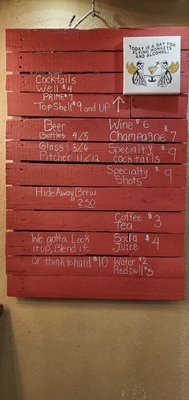 TODAY IS A DAY FOR
FLYING MONKEYS
AND ALCOHOL!
Cocktails
Well $4
PRIME $7
Top Shelf $9 and UP
Beer
Bottles 4/5
Glass 5/6
Pitcher 11/12
Wine $6
Champagne 7
Specialty $9
cocktails
Specialty $9
Shots
HideAway Brew
$2.50
Coffee $3
Tea
We gotta Look
it up, Blend it,
or think to hard $10
Soda $4
Juice
Water $2
Red bull $5